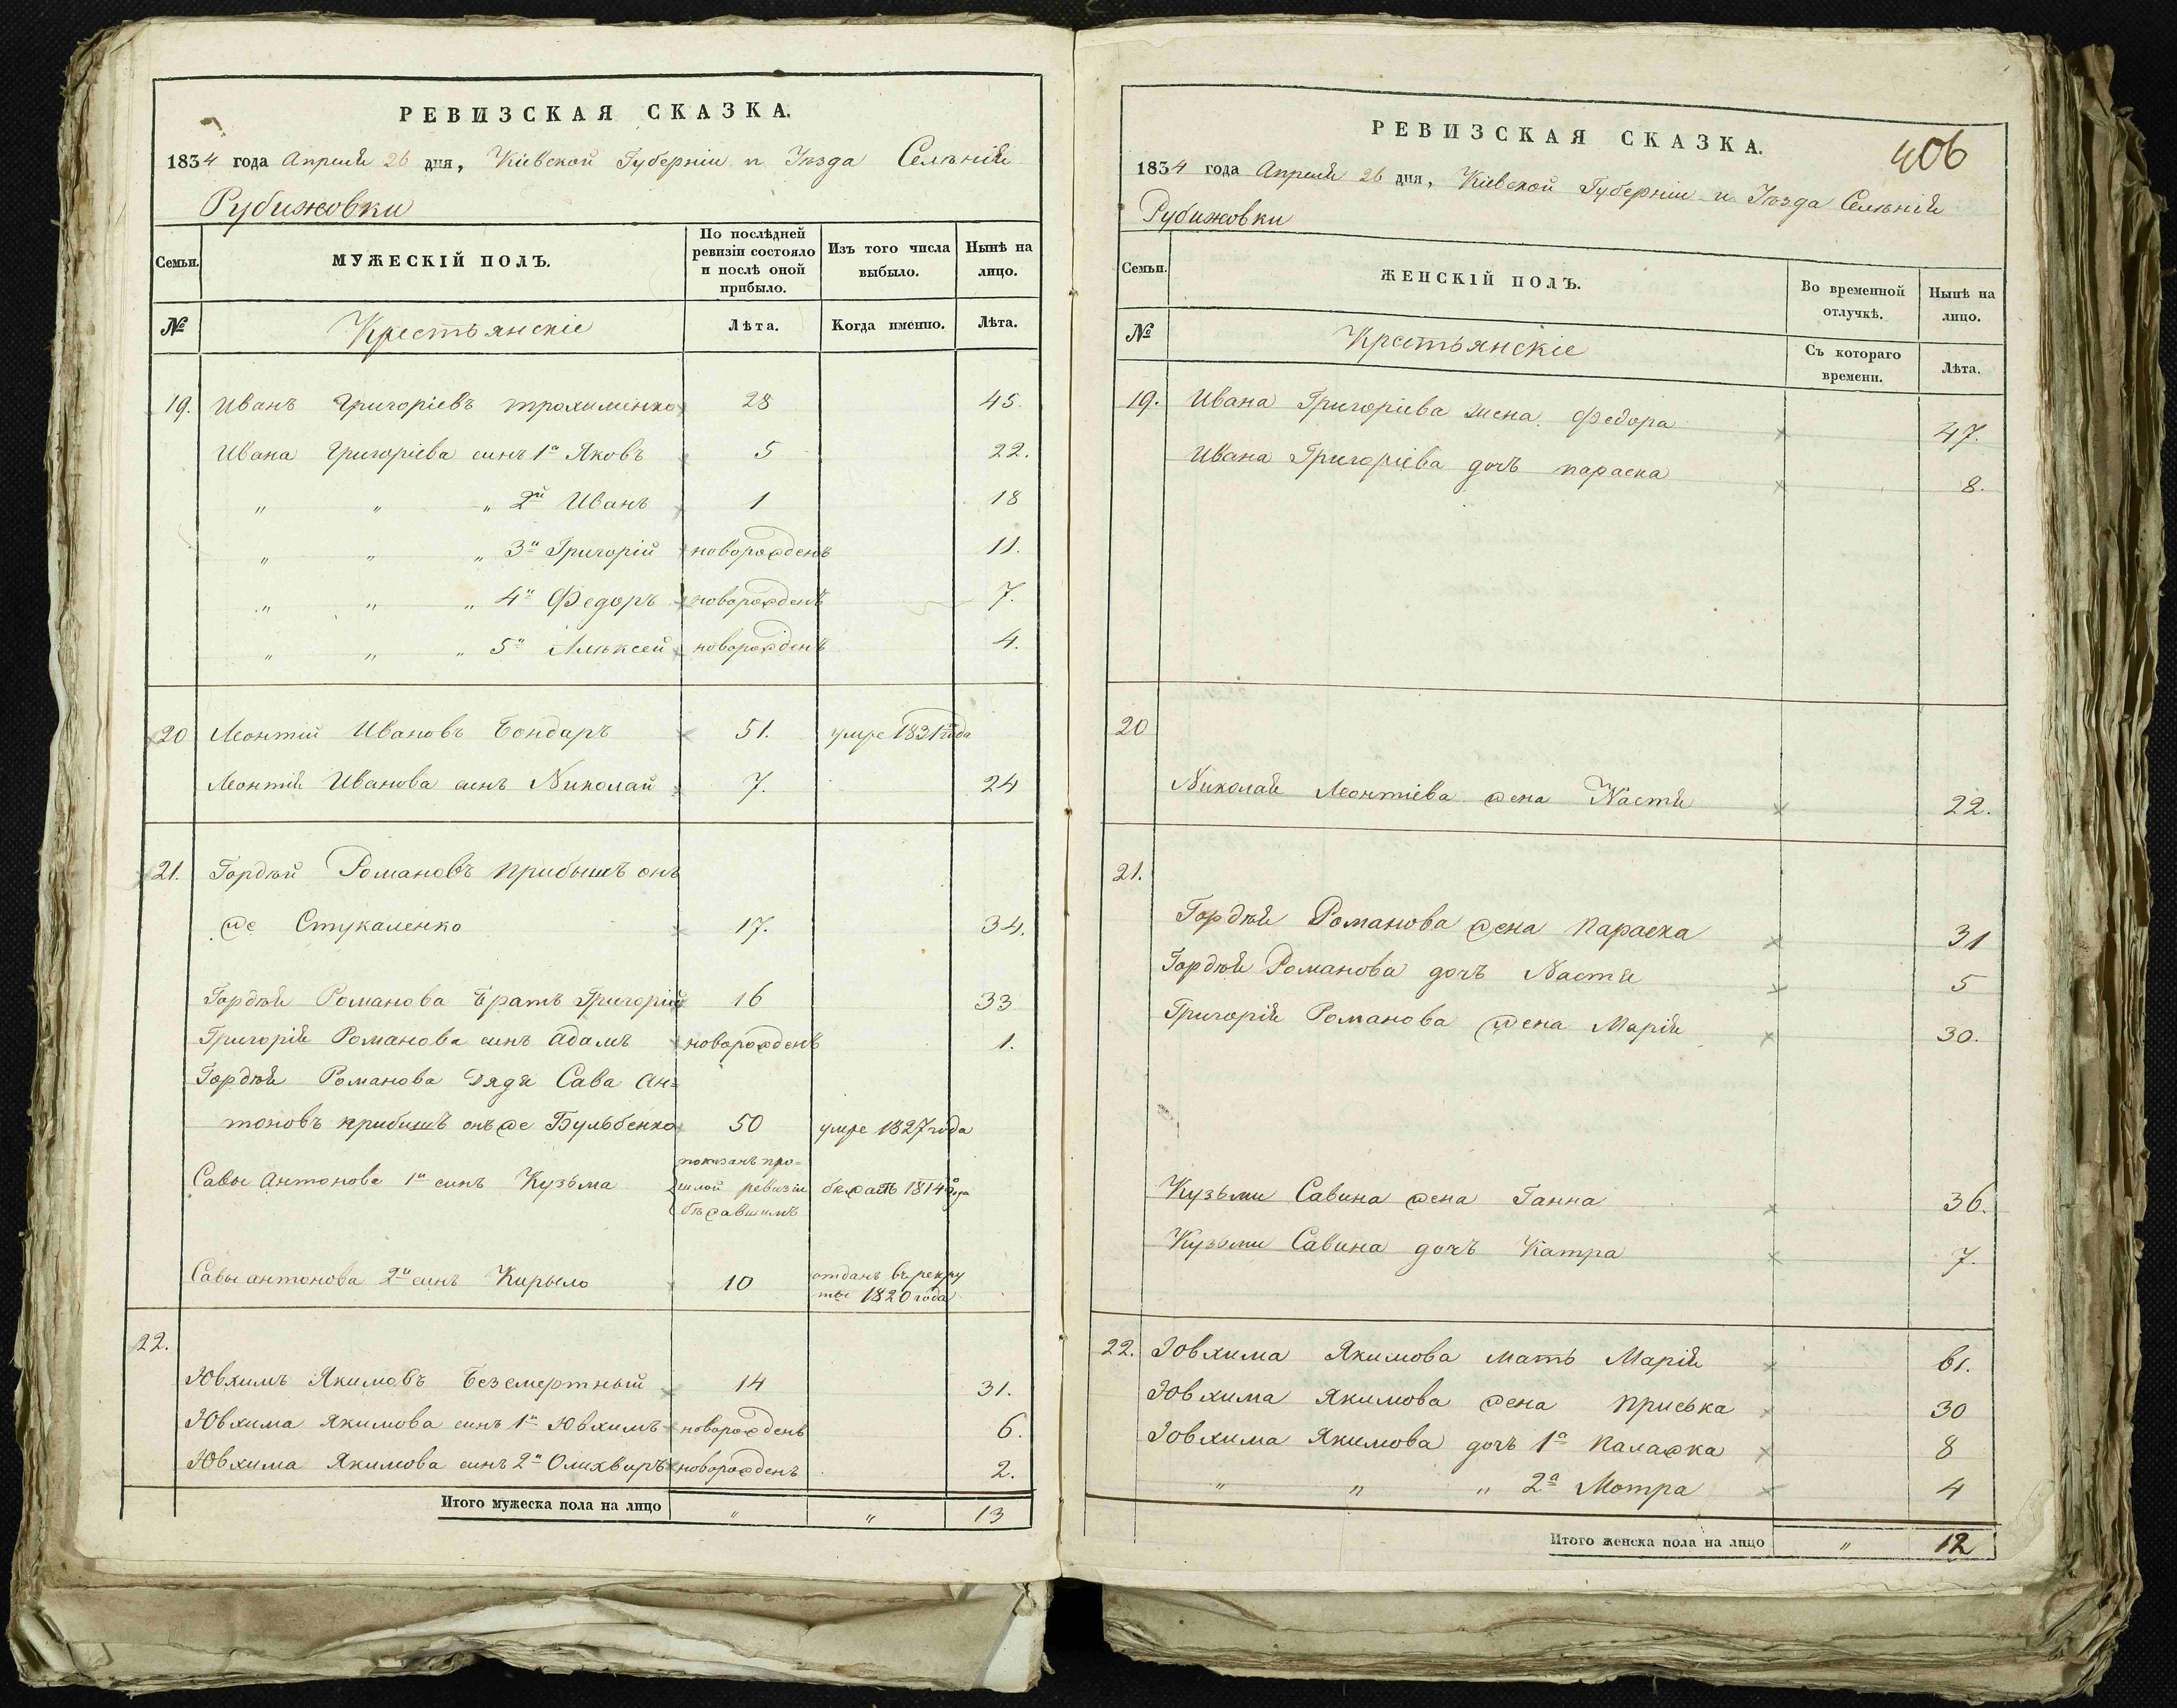 РЕВИЗСКАЯ СКАЗКА.
1834 года Апреля 26 дня, Кіевской Губерніи и Уѣзда Селѣнія
Рубижовки
Семьи.
МУЖЕСКІЙ ПОЛЪ.
По послѣдней
ревизіи состояло
и послѣ оной
прибыло.
Изъ того числа
выбыло.
Нынѣ на
лицо.
№
Крестьянскіе
Лѣта.
Когда именно.
Лѣта.
19. Иванъ Григоріевъ трохименко 28 45.
Ивана Григоріева синъ 1й Яковъ 5 22.
" " " 2й Иванъ 1 18
" " " 3й Григорій новорожденъ 11.
" " " 4й Федоръ новорожденъ 7.
" " " 5й Алѣксей новорожденъ 4.
20 Леонтій Ивановъ Бондаръ 51. умре 1831 года
Леонтія Иванова синъ Николай 7. 24
21. Гордѣй Романовъ прибышъ онъ
же Стукаленко 17. 34.
Гордѣя Романова Братъ Григорій 16 33
Григорія Романова синъ Адамъ новорожденъ 1.
Гордѣя Романова Дядя Сава Ан=
тоновъ прибишъ онъ же Бульбенко 50 умре 1827 года
Савы Антонова 1й синъ Кузьма показанъ про=
шлой ревизіи бежалъ 1814 года
бѣжавшимъ
Савы антонова 2й синъ Кирыло 10 отданъ въ рекру
ты 1820 года
22.
Ювхимъ Якимовъ Безсмертный 14 31.
Ювхима Якимова синъ 1й Ювхимъ новорожденъ 6.
Ювхима Якимова синъ 2й Олихвиръ новорожденъ 2.
Итого мужеска пола на лицо " " 13
РЕВИЗСКАЯ СКАЗКА.
406
1834 года Апреля 26 дня, Кіевской Губерніи и Уѣзда Селѣнія
Рубижовки
Семьи.
ЖЕНСКІЙ ПОЛЪ.
Во временной
отлучкѣ.
Нынѣ на
лицо.
№
Крестьянскіе
Съ котораго
времени.
Лѣта.
19. Ивана Григоріева жена Федора 47.
Ивана Григоріева дочь параска 8.
20
Николая Леонтіева жена Настя 22.
21.
Гордѣя Романова жена Параска 31
Гордѣя Романова дочъ Настя 5
Григорія Романова жена Марія 30.
Кузьми Савина жена Ганна 36.
Кузьми Савина дочъ Катра 7.
22. Ювхима Якимова мать Марія 61.
Ювхима Якимова жена Приська 30
Ювхима Якимова дочъ 1а Палажка 8
" " " 2а Мотра 4
Итого женска пола на лицо " 12